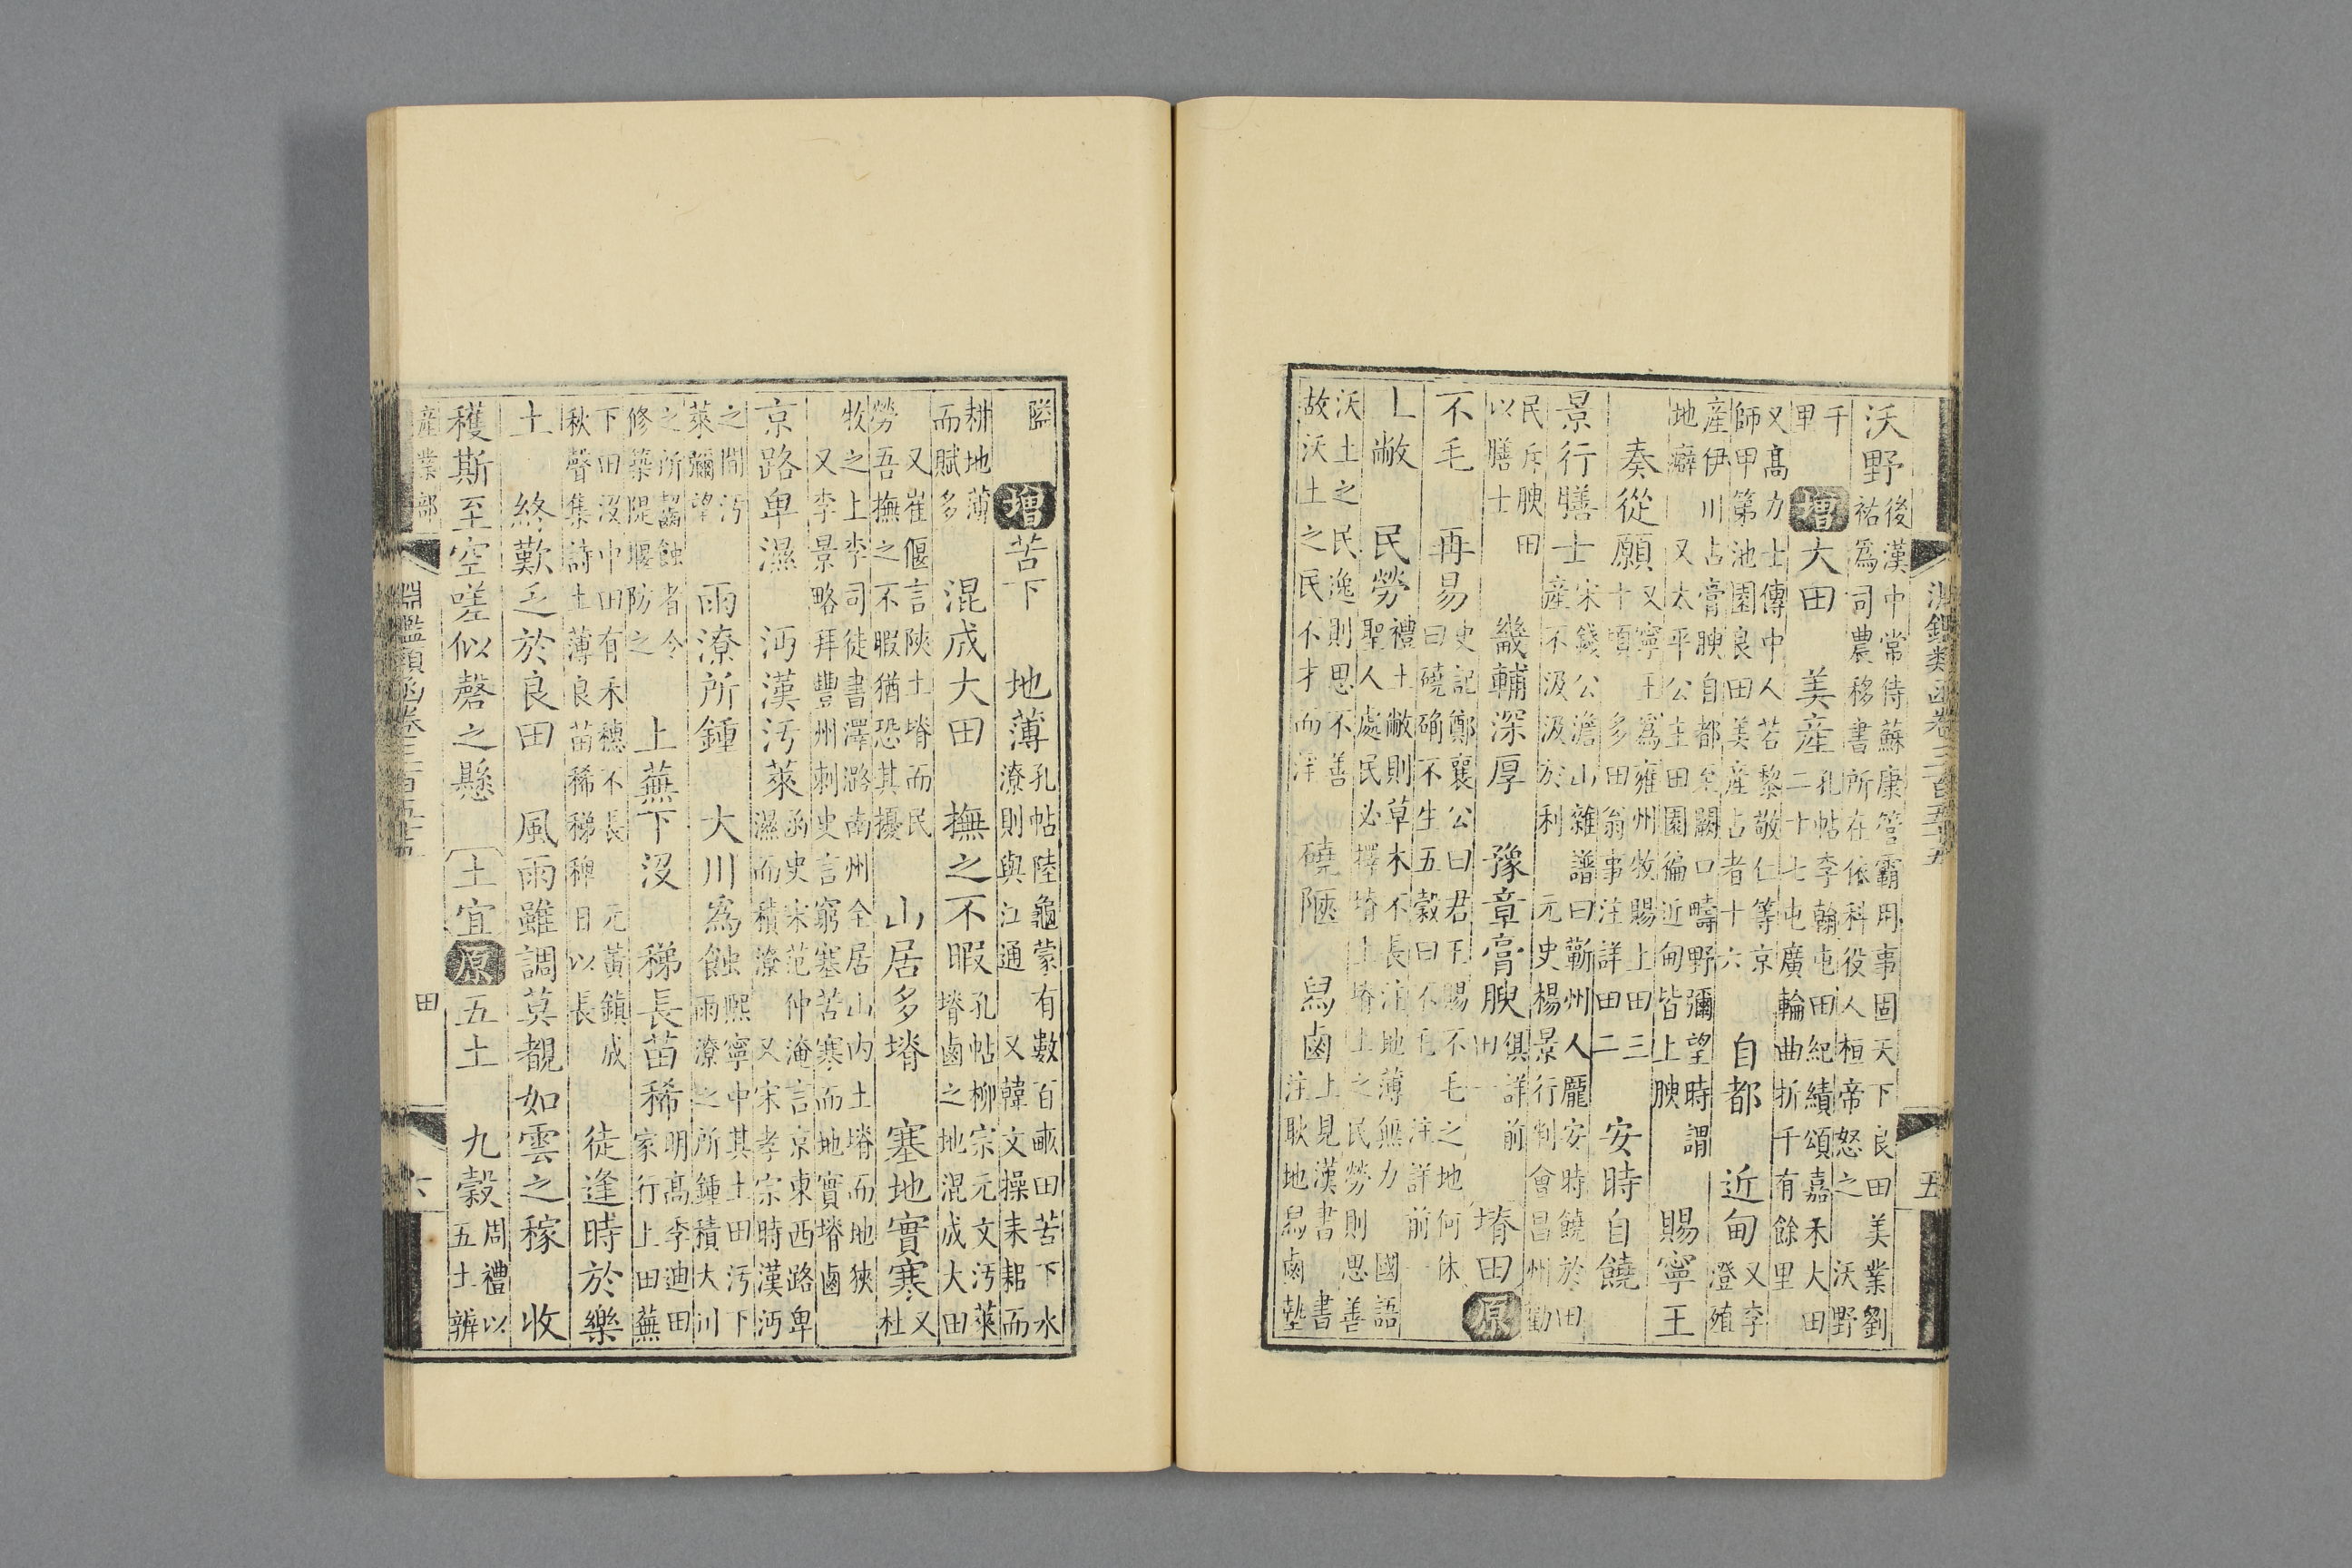 沃野後漢中常侍蘇康管霸用事固天下良田美業劉祐爲司農移書所在依科役人桓帝怒之沃野
千里增大田 美產孔帖李翰屯田紀績頌嘉禾大田二十七屯廣輪曲折千有餘里
又高力士傳中人若黎敬仁等京師甲第池園良田美產占者十六 自都 近甸又李澄殖
產伊川占膏腴自都至闕口疇野彌望時謂地癖 又太平公主田園徧近甸皆上腴 賜寧王
奏從願又寧王爲雍州牧賜上田三十頃 多田翁事注詳田二 安時自饒
景行膳士宋錢公澹山雜譜曰蘄州人龐安時饒於田產不汲汲於利 元史楊景行判會昌州勸
民斥腴田以膳士 畿輔深厚 豫章膏腴俱詳前田一 塉田原
不毛 再易史記鄭襄公曰君王賜不毛之地何休曰磽确不生五穀曰不毛 注詳前一
敝 民勞禮土敝則草木不長注地薄無力 國語聖人處民必擇塉土塉土之民勞則思善
沃土之民逸則思不善故沃土之民不才而淫 磽陿 舄鹵上見漢書 書注耿地舄鹵墊
隘增苦下 地薄孔帖陸龜蒙有數百畝田苦下水潦則與江通 又韓文操耒耜而
耕地薄而賦多 混成大田 撫之不暇孔帖柳宗元文汚萊塉鹵之地混成大田
又崔偃言陝土塉而民勞吾撫之不暇猶恐其擾 山居多塉 塞地實寒又杜
牧之上李司徒書澤潞南州全居山內土塉而地狹 又李景略拜豐州刺史言窮塞苦寒而地實塉鹵
京路卑濕 沔漢汚萊函史宋范仲淹言京東西路卑濕而積潦 又宋孝宗時漢沔
之間汚萊彌望 雨潦所鍾 大川爲蝕熙寧中其土田汚下雨潦之所鍾積大川
之所齧蝕者令修築隄堰防之 上蕪下沒 稊長苗稀明高季迪田家行上田蕪
下田沒中田有禾穗不長 元黃鎮成秋聲集詩土薄良苗稀稊稗日以長 徒逢時於樂
土 終歎乏於良田 風雨雖調莫覩如雲之稼 收
穫斯至空嗟似磬之懸 土宜原五土 九穀周禮以五土辨
淵鑑類函卷三百五十五
五
產業部
淵鑑類函卷三百五十五
田
六